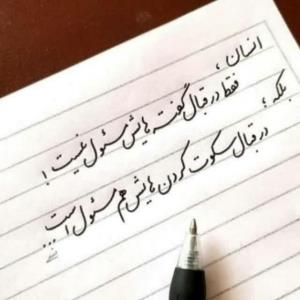 انسان ،
فقط در قبال گفته هایش مسئول نیست !
بلکه ؛
در قبال سکوت کردن هایش هم مسئول است ...